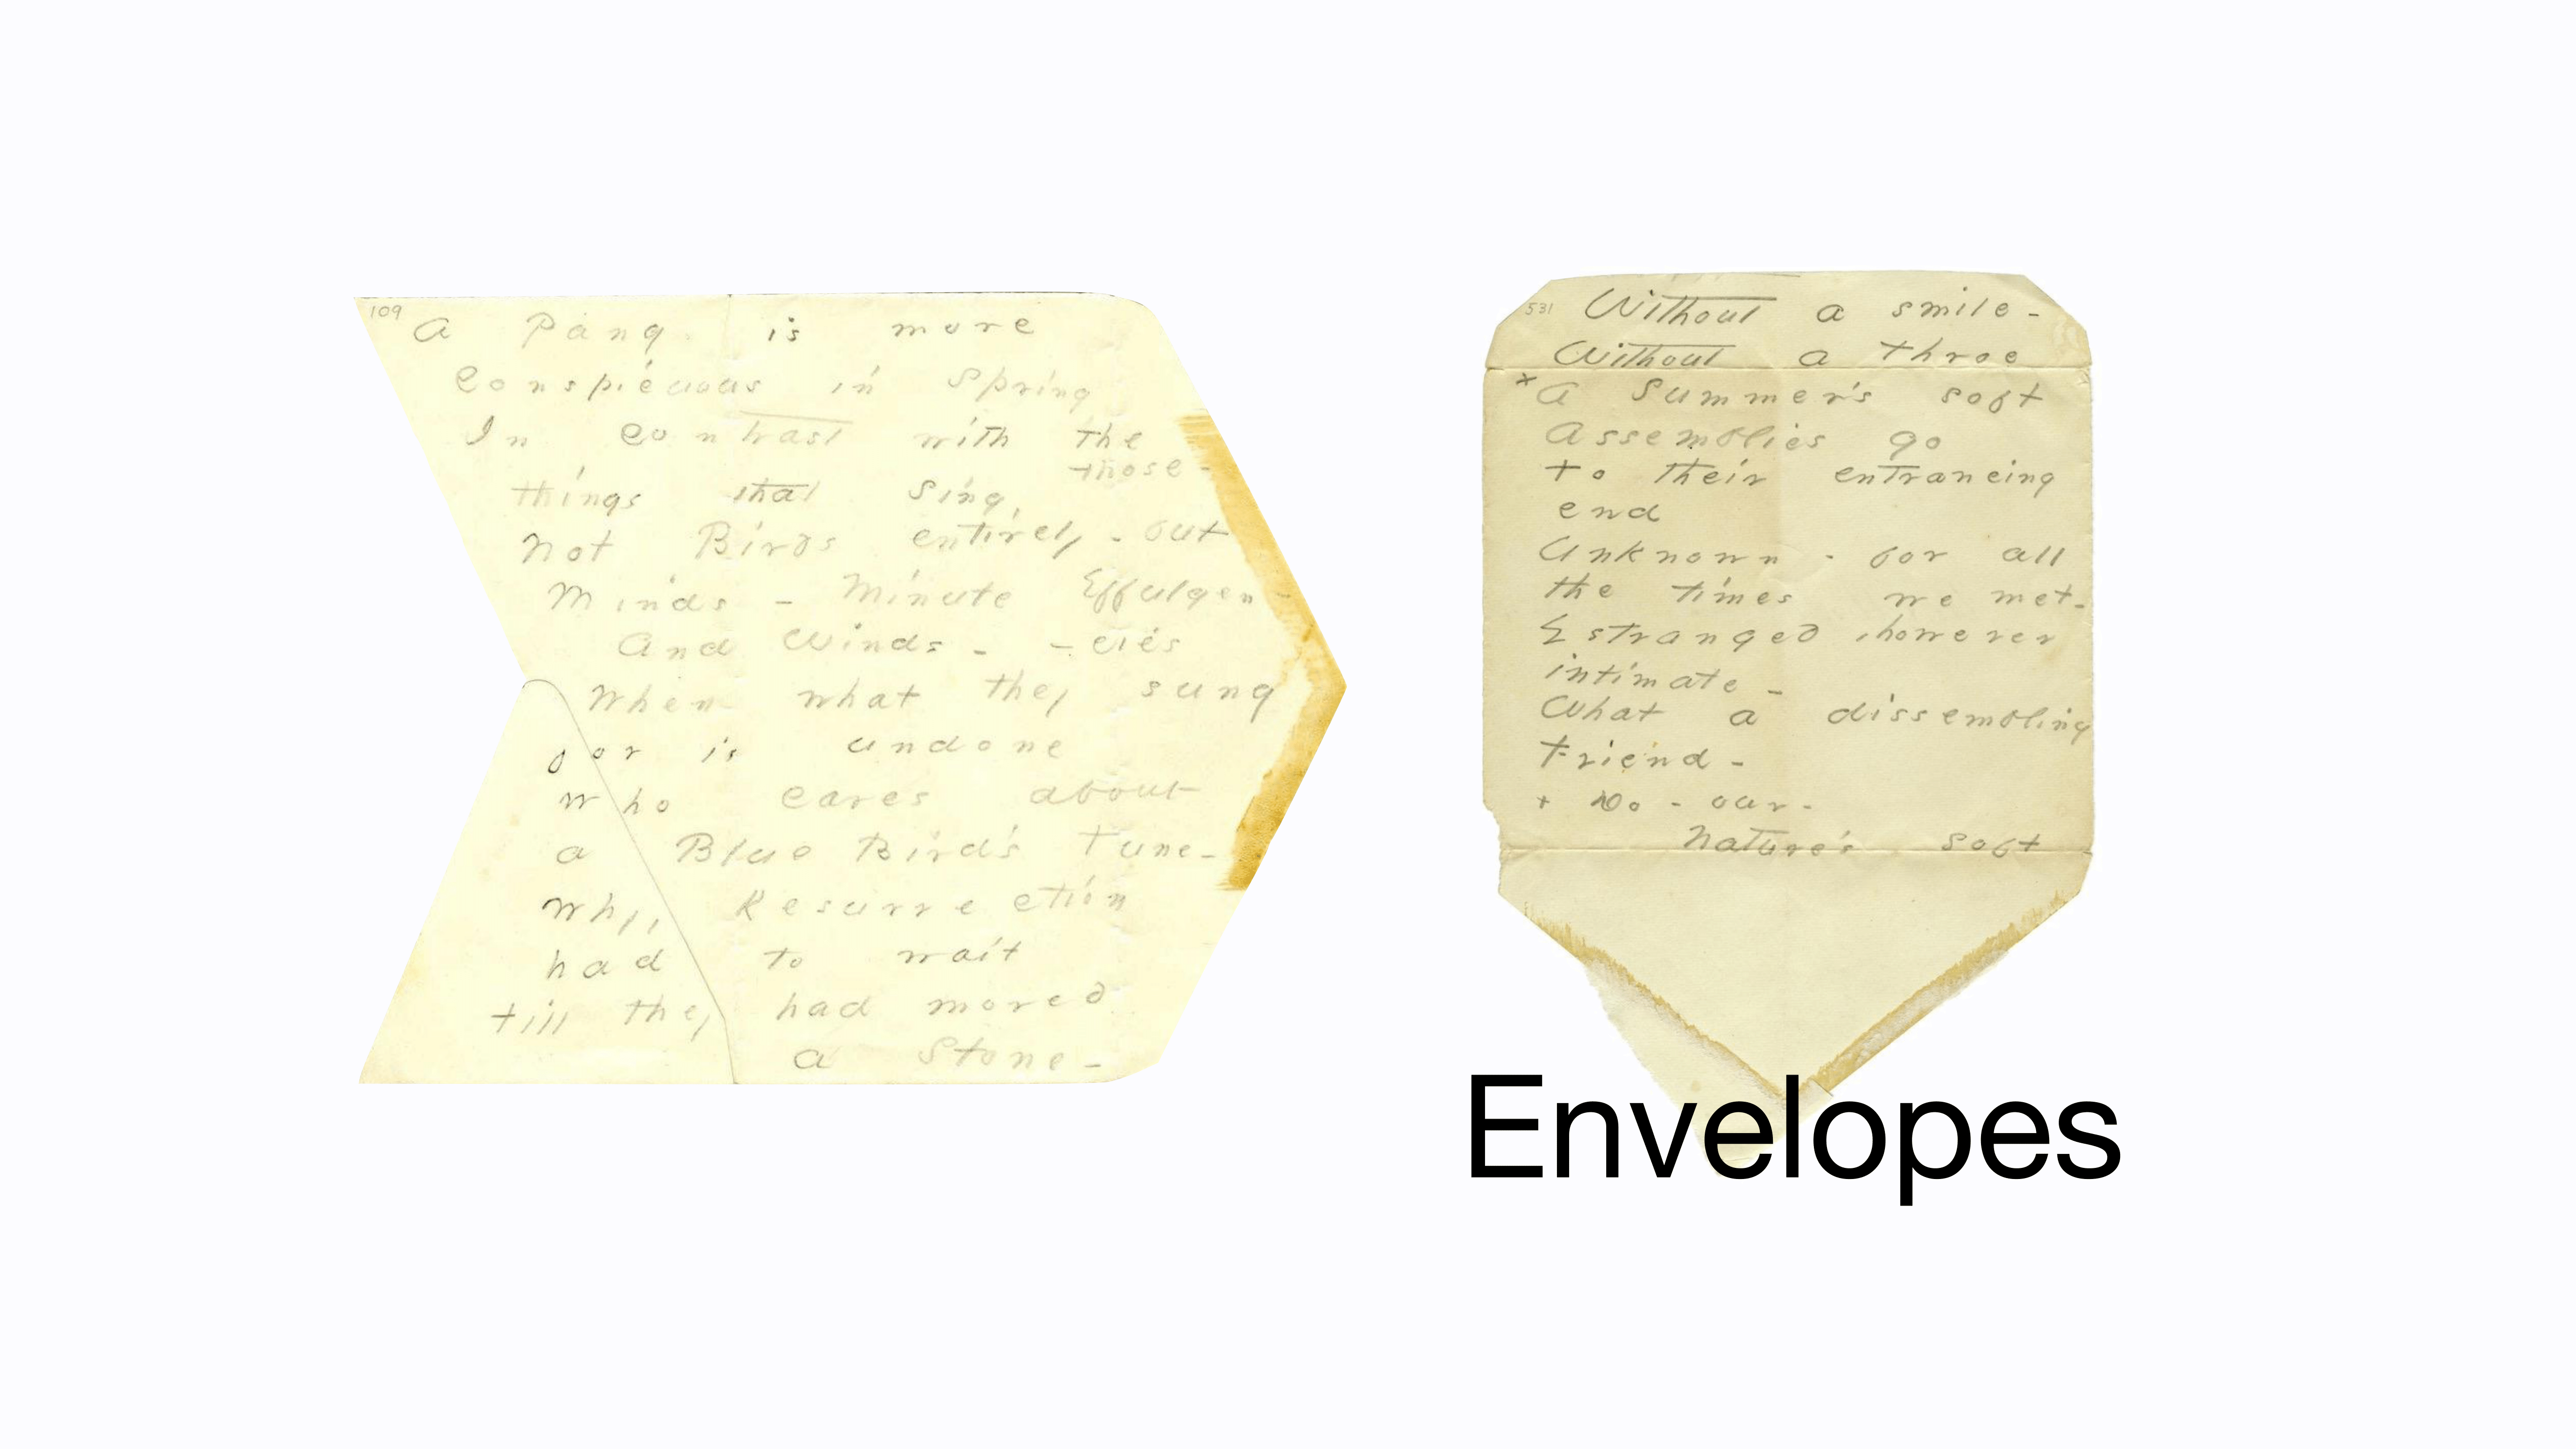 109
A Pang is more
Conspicuous in Spring
In contrast with the
those -
things that sing,
Not Birds entirely - but
Minds - Minute Effulgen-
And Winds - - cies
When what they sung
for is undone
Who cares about
a Blue Bird's Tune -
Why, Resurrection
had to wait
till they had moved
a Stone -
531
Without a smile -
Without a throe
x A Summer's soft
Assemblies go
to their entrancing
end
Unknown - for all
the times we met -
Estranged, however
intimate -
What a dissembling
Friend -
+ Do - our -
Nature's soft -
Envelopes